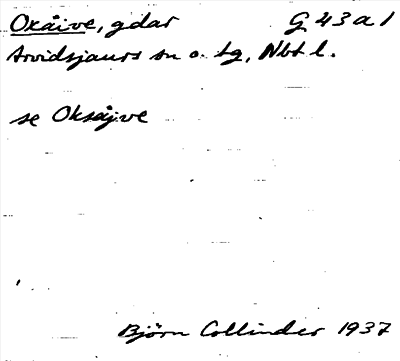 Oxåive, gdar G 43 a 1
Arvidsjaurs sn o. tg, Nbt l.
se Oksåjve
Björn Collinder 1937